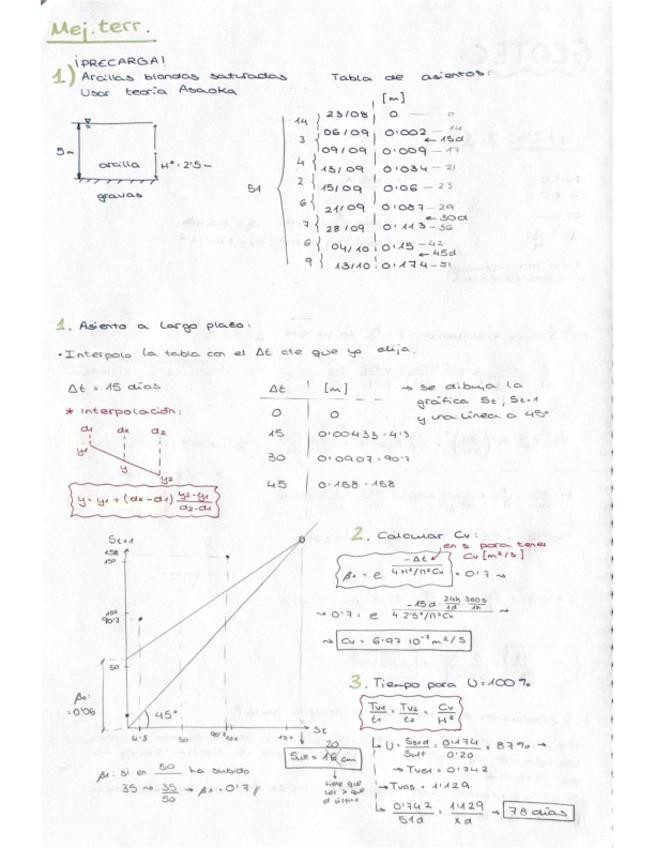 Mej. terr.
¡PRECARGA!
1) Arcillas blandas saturadas
Usar teoría Asaoka
Tabla de asientos:
[m]
5m
arcilla
H* = 2'5m
gravas
51
14 { 23/08 0 — 0
3 { 06/09 0'002 - 14
← 15d
09/09 0'009 - 17
4 { 13/09 0'034 - 21
2 { 15/09 0'06 - 23
6 { 21/09 0'087 - 29
← 30d
7 { 28/09 0'113 - 36
6 { 04/10 0'15 - 42
← 45d
9 { 13/10 0'174 - 51
1. Asiento a largo plazo:
• Interpolo la tabla con el Δt cte que yo elija.
Δt = 15 días
* Interpolación:
d1 dx d2
y1
y
y2
y = y1 + (dx - d1) y2-y1 / d2-d1
Δt [m]
0 0
15 0'00433 = 4'3
30 0'0907 = 90'7
45 0'158 = 158
→ se dibuja la
gráfica St, St+1
y una línea a 45°
St+1
158
150
90'7
50
β0:
=0'06
45°
4'3 50 90'7 100 150 St
20
Sult = cm
tiene que
ser > que
el último
β1: si en 50 ha subido
35 → 35/50 → β1 = 0'7
2. Calcular Cv:
en s para tener
Cv [m²/s]
β1 = e -Δt / 4H²/π²Cv = 0'7 →
→ 0'7 = e -15d · 24h/1d · / 4 · 2'5²/π²Cv →
→ Cv = 6'97 10⁻⁷ m²/s
3. Tiempo para U = 100%
Tv1/t1 = Tv2/t2 = Cv/H²
↳ U = S51d/Sult = 0'174/0'20 = 87% →
→ Tv51 = 0'742
→ = 1'129
↳ 0'742/51d = 1'129/xd → 78 días